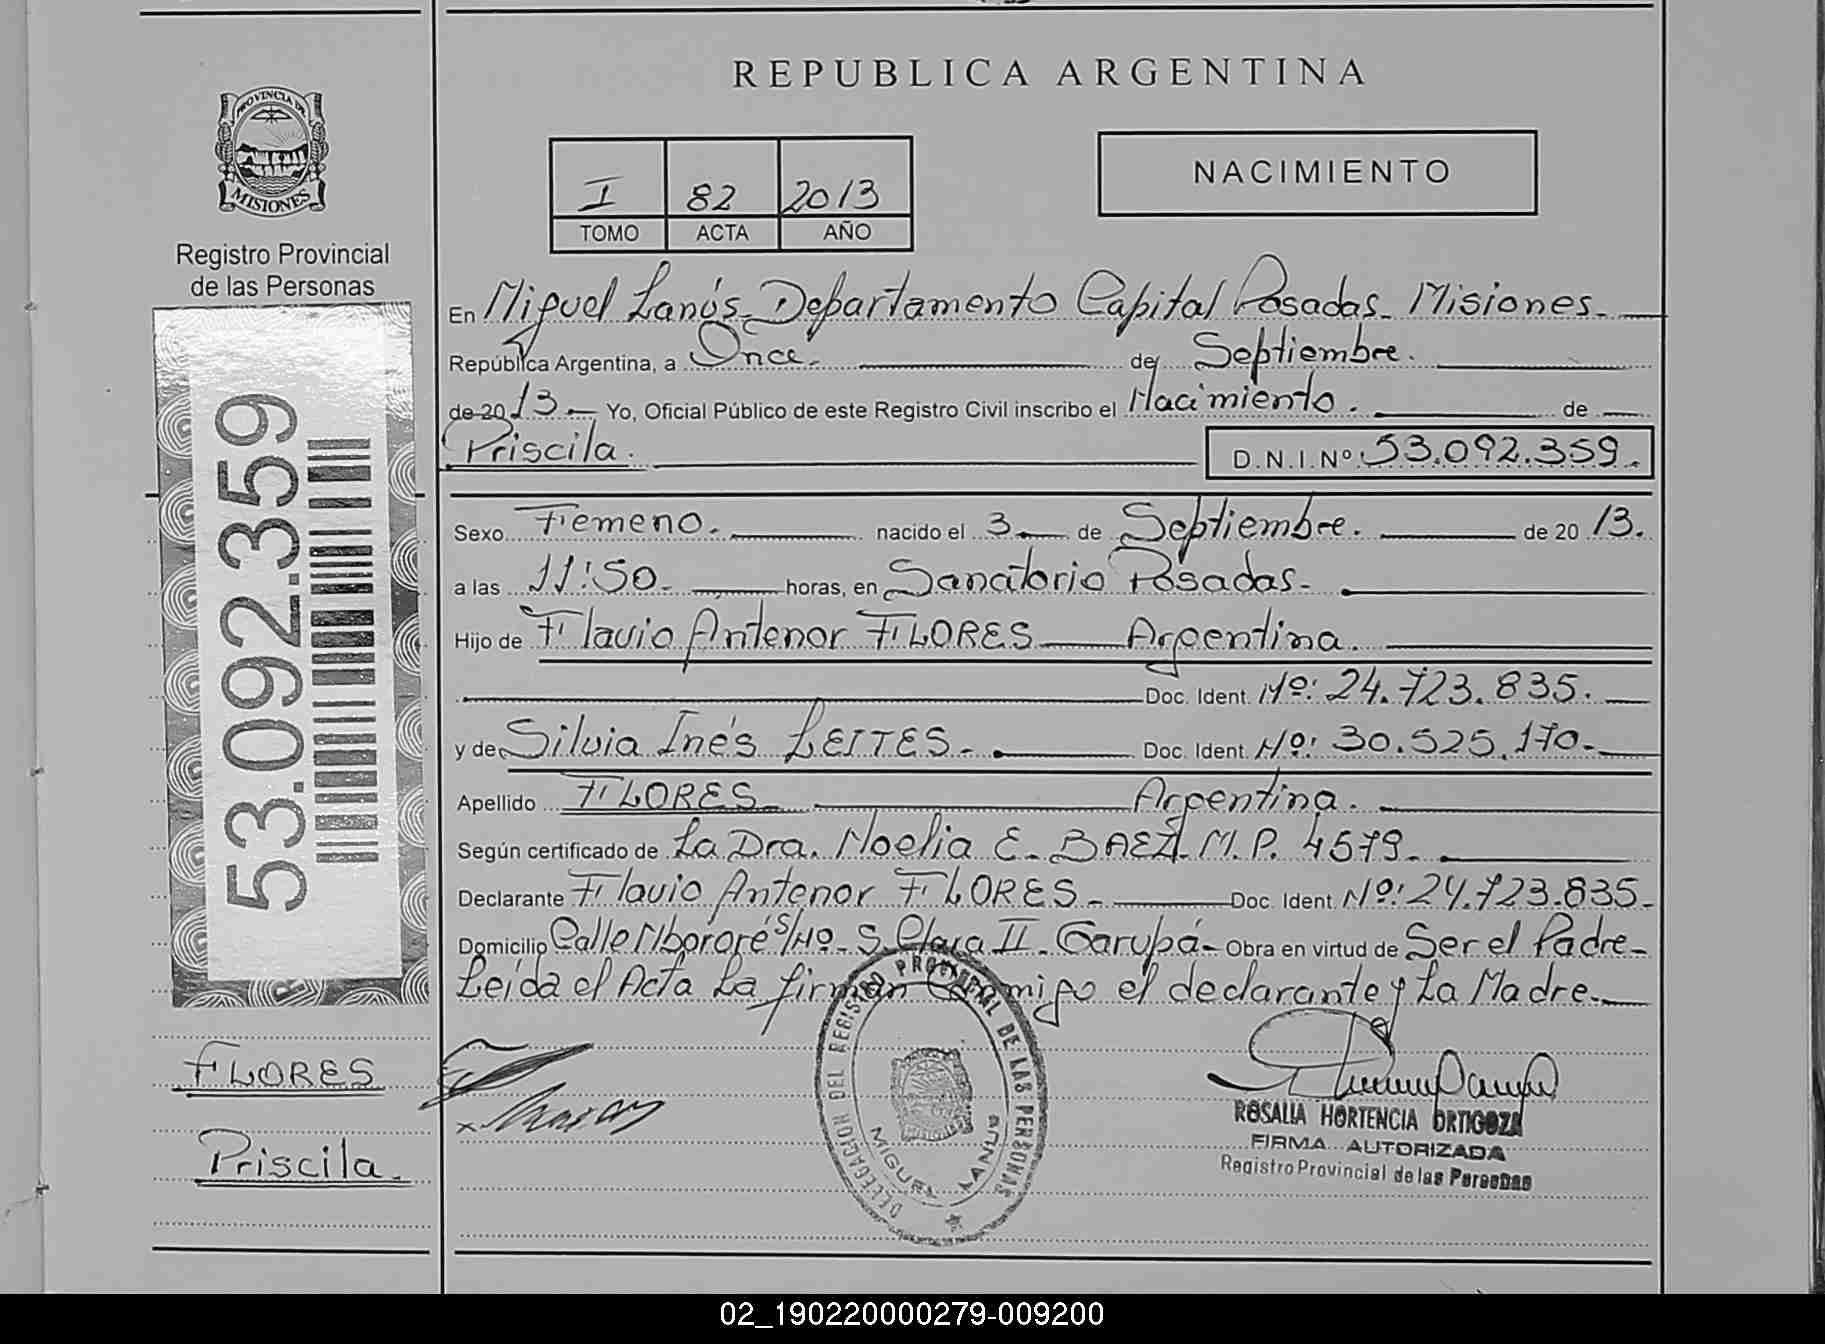 PROVINCIA DE
MISIONES
Registro Provincial
de las Personas
53.092.359
FLORES
Priscila.
REPUBLICA ARGENTINA
I 82 2013
TOMO ACTA AÑO
NACIMIENTO
En Miguel Lanús Departamento Capital Posadas Misiones.
República Argentina, a Once. de Septiembre.
de 2013 Yo, Oficial Público de este Registro Civil inscribo el Nacimiento. de
Priscila. D.N.I.Nº 53.092.359.
Sexo Femeno. nacido el 3 de Septiembre. de 20 13.
a las 11:50. horas, en Sanatorio Posadas.
Hijo de Flavio Antenor FLORES Argentina.
Doc. Ident. Nº: 24.723.835.
y de Silvia Inés LEITES. Doc. Ident. Nº: 30.525.170.
Apellido FLORES Argentina.
Según certificado de La Dra. Noelia E. BAEZ M.P. 4579.
Declarante Flavio Antenor FLORES. Doc. Ident. Nº: 24.723.835.
Domicilio Calle Mbororé S/Nº S. Clara II. Garupá Obra en virtud de Ser el Padre
Leída el Acta La firman Conmigo el declarante y La Madre.
DELEGACION DEL REGISTRO PROVINCIAL DE LAS PERSONAS
MIGUEL LANUS
ROSALIA HORTENCIA ORTIGOZA
FIRMA AUTORIZADA
Registro Provincial de las Personas
02_190220000279-009200